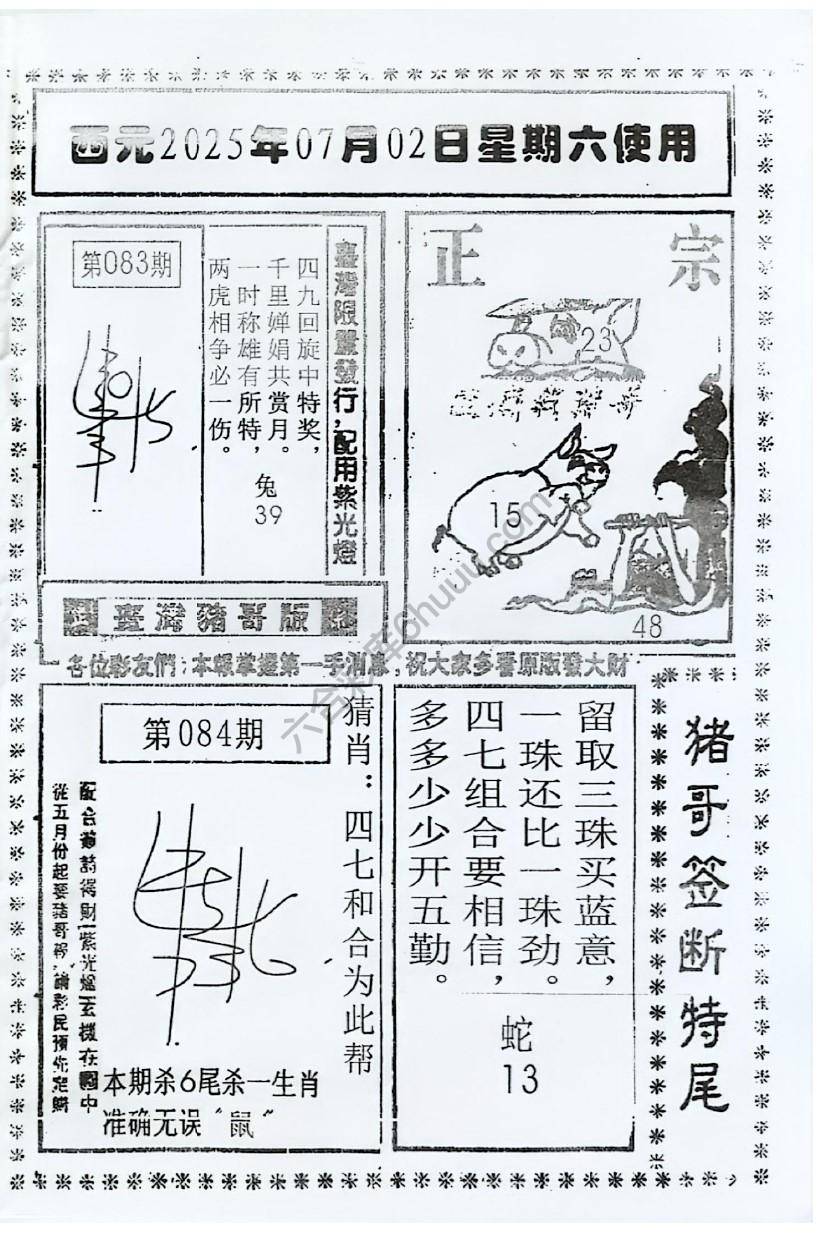 西元2025年07月02日星期六使用
第083期
臺灣限量發行，配用紫光燈
四九回旋中特奖，
千里婵娟共赏月。
一时称雄有所特，
两虎相争必一伤。
兔
39
正宗
23
15
48
臺灣豬哥版
各位彩友們：本報掌握第一手消息，祝大家多看原版發大財
第084期
猜肖：四七和合为此帮
從五月份起要豬哥報，請彩民預先定購
本期杀6尾杀一生肖
准确无误“鼠“
留取三珠买蓝意，
一珠还比一珠劲。
四七组合要相信，
多多少少开五勤。
蛇
13
猪哥签断特尾
六合彩库6huuu.com